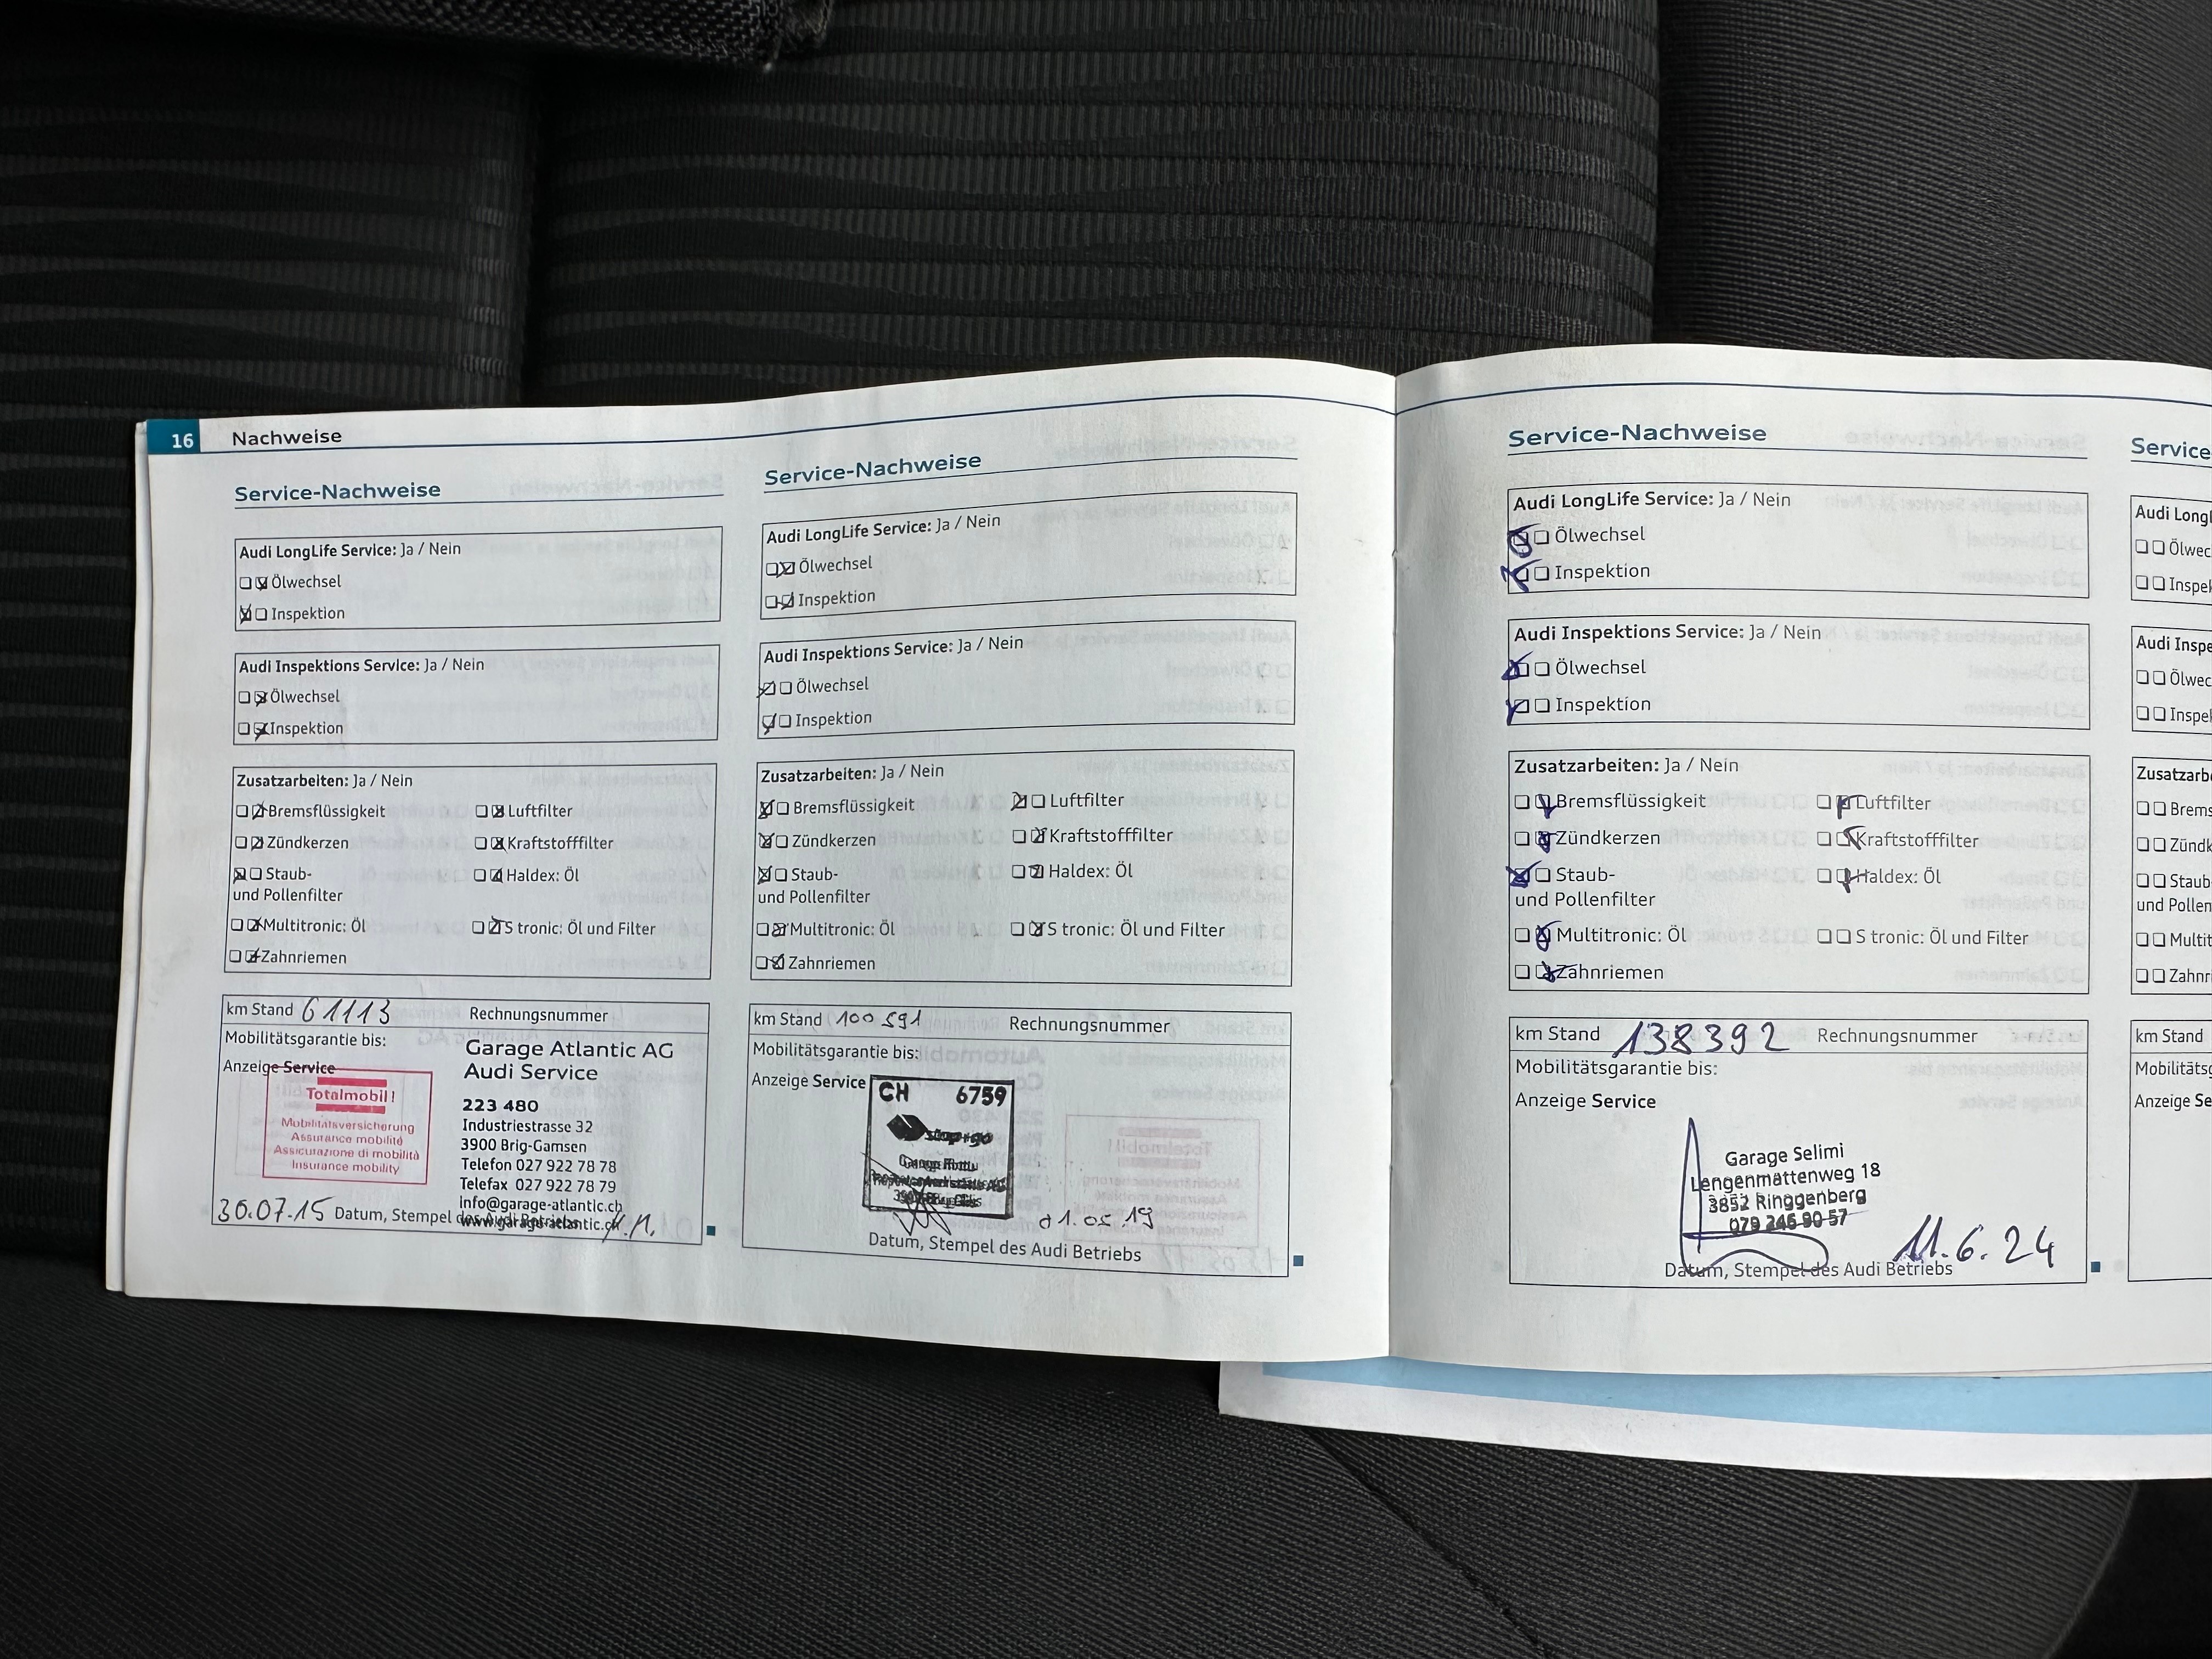 16 Nachweise
Service-Nachweise
Audi LongLife Service: Ja / Nein
Ölwechsel
Inspektion
Audi Inspektions Service: Ja / Nein
Ölwechsel
Inspektion
Zusatzarbeiten: Ja / Nein
Bremsflüssigkeit Luftfilter
Zündkerzen Kraftstofffilter
Staub- Haldex: Öl
und Pollenfilter
Multitronic: Öl S tronic: Öl und Filter
Zahnriemen
km Stand 61113 Rechnungsnummer
Mobilitätsgarantie bis:
Anzeige Service
Totalmobil!
Mobilitätsversicherung
Assurance mobilité
Assicurazione di mobilità
Insurance mobility
Garage Atlantic AG
Audi Service
223 480
Industriestrasse 32
3900 Brig-Gamsen
Telefon 027 922 78 78
Telefax 027 922 78 79
info@garage-atlantic.ch
www.garage-atlantic.ch
30.07.15 Datum, Stempel des Audi Betriebs
Service-Nachweise
Audi LongLife Service: Ja / Nein
Ölwechsel
Inspektion
Audi Inspektions Service: Ja / Nein
Ölwechsel
Inspektion
Zusatzarbeiten: Ja / Nein
Bremsflüssigkeit Luftfilter
Zündkerzen Kraftstofffilter
Staub- Haldex: Öl
und Pollenfilter
Multitronic: Öl S tronic: Öl und Filter
Zahnriemen
km Stand 100591 Rechnungsnummer
Mobilitätsgarantie bis:
Anzeige Service
CH 6759
Garage
01.05.19
Datum, Stempel des Audi Betriebs
Service-Nachweise
Audi LongLife Service: Ja / Nein
Ölwechsel
Inspektion
Audi Inspektions Service: Ja / Nein
Ölwechsel
Inspektion
Zusatzarbeiten: Ja / Nein
Bremsflüssigkeit Luftfilter
Zündkerzen Kraftstofffilter
Staub- Haldex: Öl
und Pollenfilter
Multitronic: Öl S tronic: Öl und Filter
Zahnriemen
km Stand 138392 Rechnungsnummer
Mobilitätsgarantie bis:
Anzeige Service
Garage Selimi
Lengenmattenweg 18
3852 Ringgenberg
079 246 90 57
11.6.24
Datum, Stempel des Audi Betriebs
Service
Audi Long
Ölwec
Inspek
Audi Inspe
Ölwec
Inspek
Zusatzarb
Brems
Zündk
Staub
und Pollen
Multit
Zahnr
km Stand
Mobilitäts
Anzeige Se